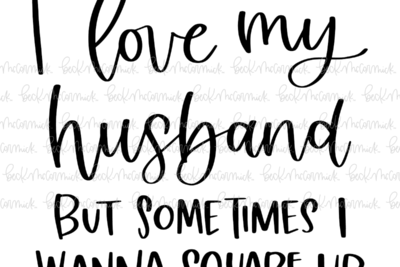 I love my
husband
BUT SOMETIMES I
WANNA SQUARE UP